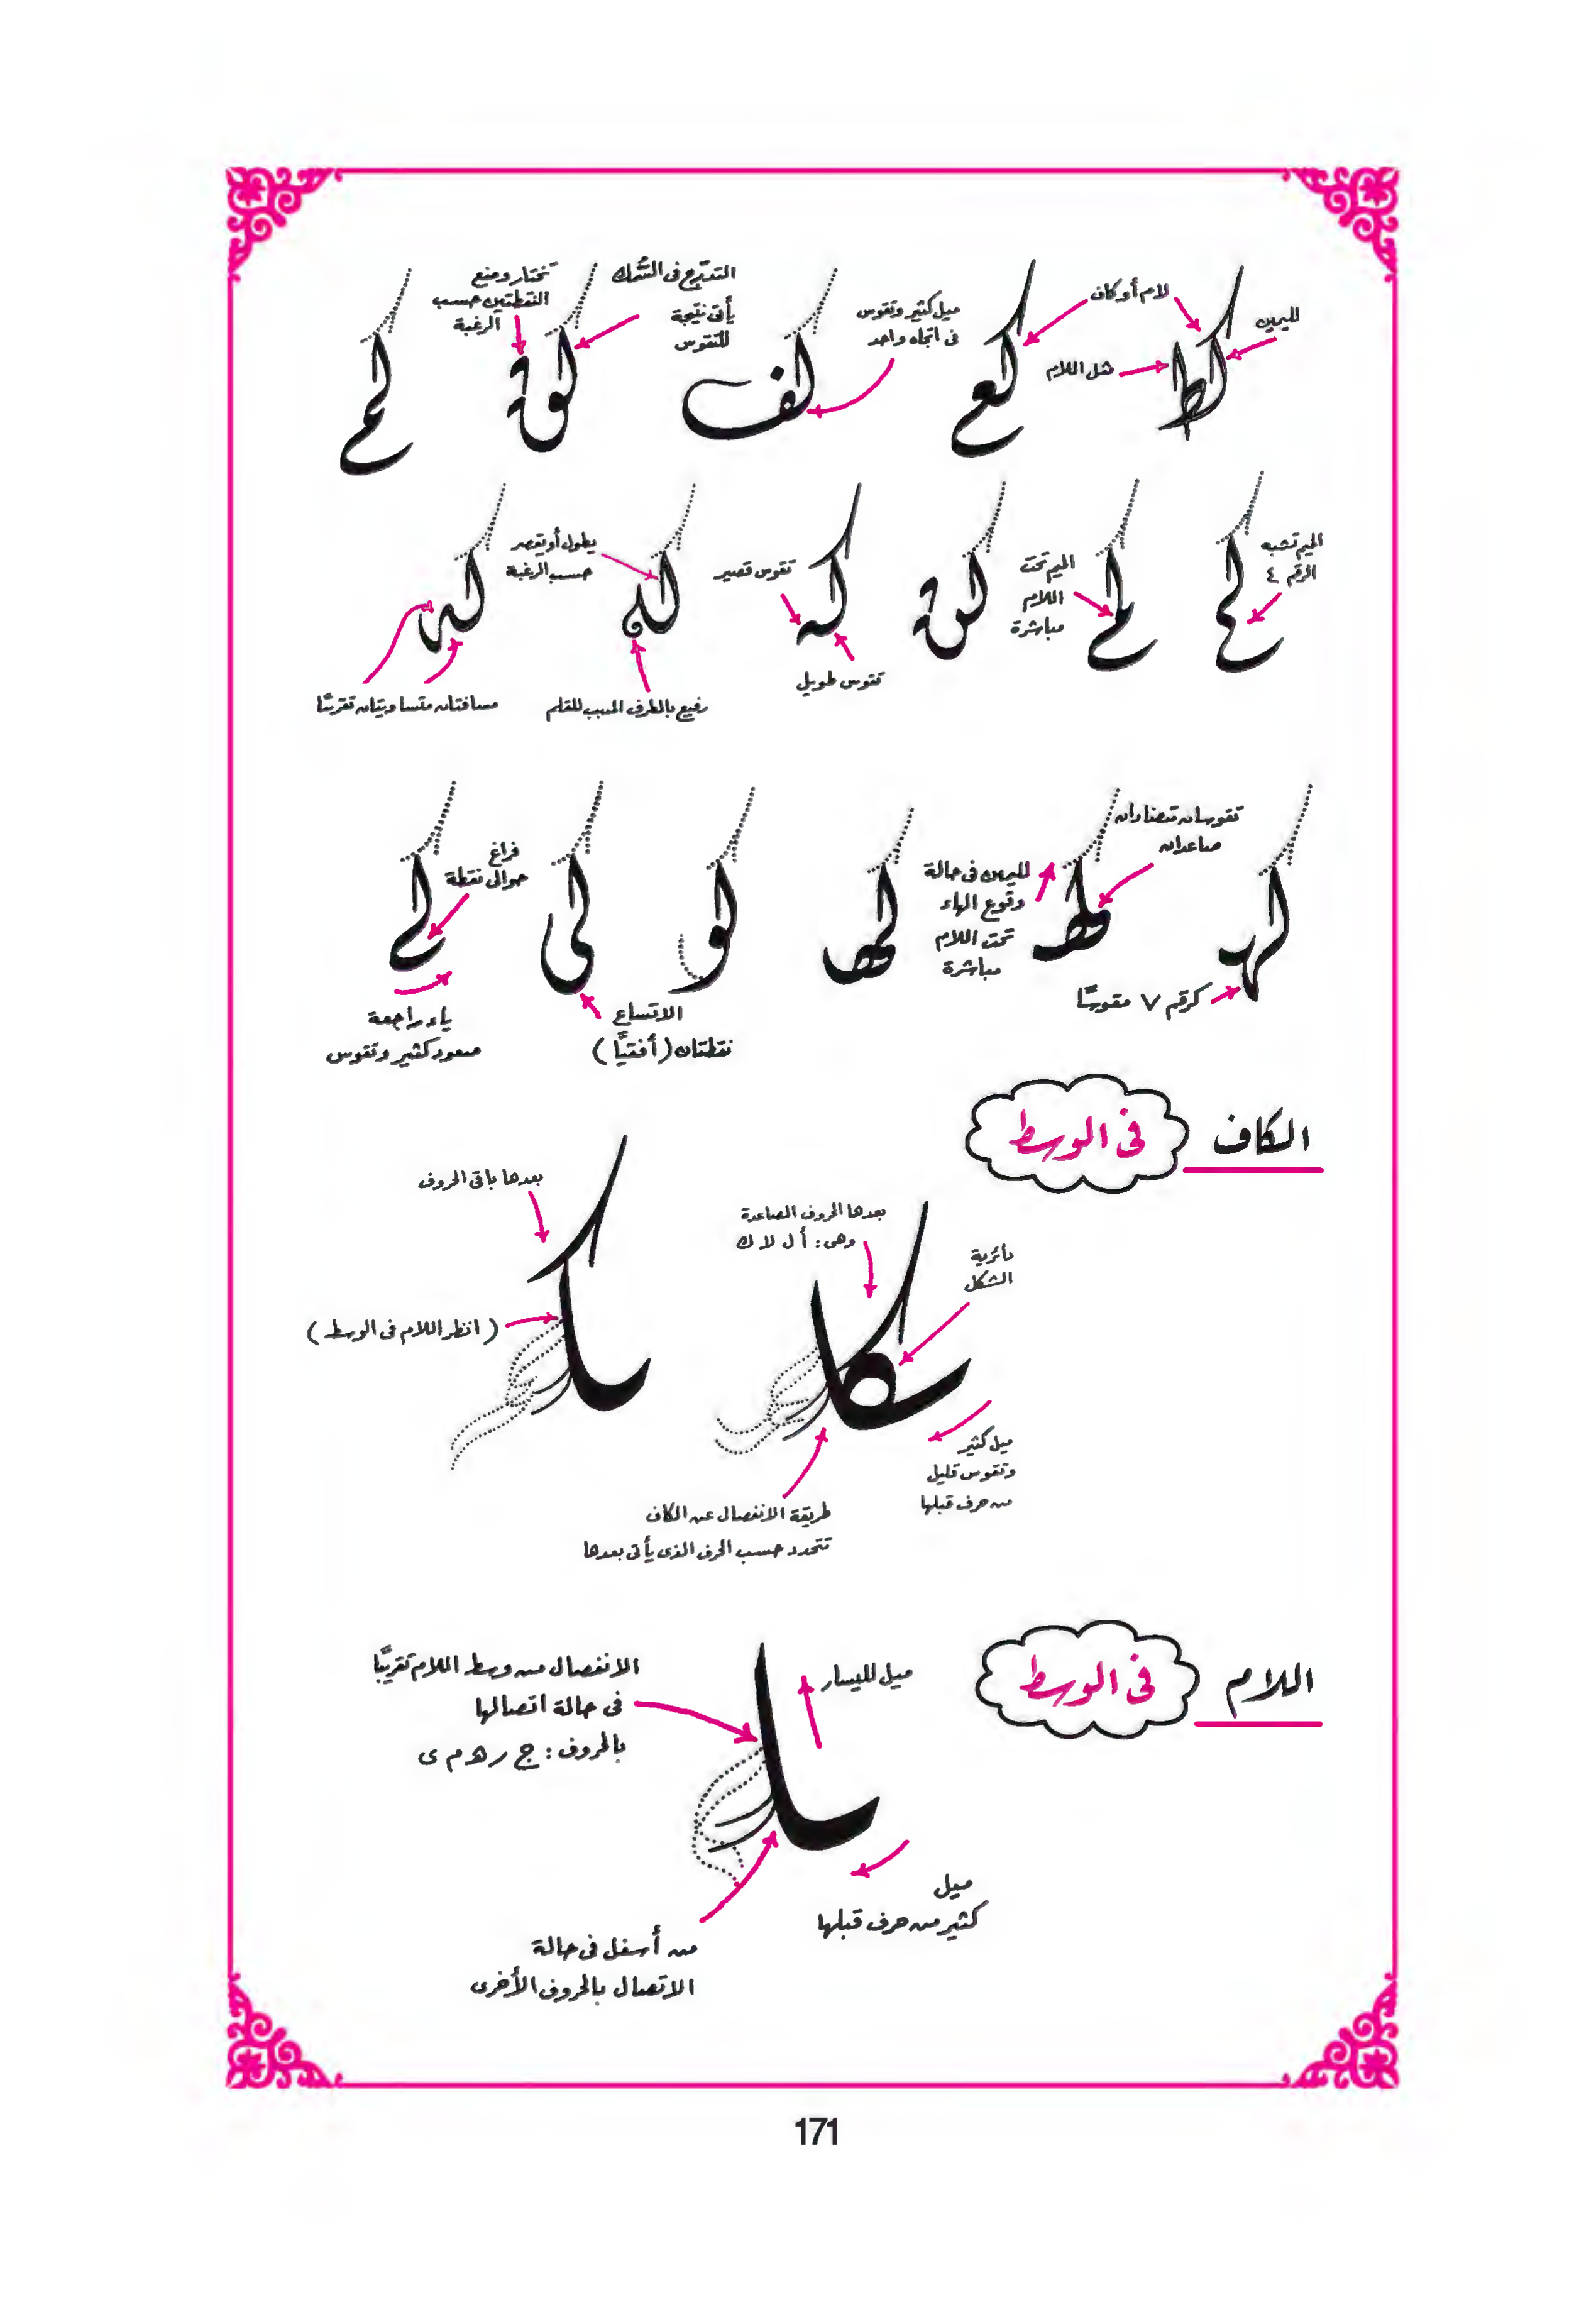 لليمين
لام أو كاف
مثل اللام
لط
كع
ميل كثير وتقوس
فى اتجاه واحد
لف
التدرج فى السُّمك
يأتى نتيجة
للتقوس
لق
تختار وضع
النقطتين حسب
الرغبة
لم
الميم تشبه
الرقم ٤
لم
الميم تحت
اللام
مباشرة
لم
لن
كه
تقوس قصير
تقوس طويل
له
يطول أو يقصر
حسب الرغبة
رفيع بالطرف المدبب للقلم
له
مسافتان متساويتان تقريبًا
لها
كرقم ٧ مقوسًا
تقوسان متضادان
صاعدان
لليمين فى حالة
وقوع الهاء
تحت اللام
مباشرة
لهـ
لهـ
لو
لى
الاتساع
نقطتان (أفقيًّا)
لى
فراغ
حوالى نقطة
ياء راجعة
صعود كثير وتقوس
الكاف فى الوسط
بعدها باقى الحروف
(انظر اللام فى الوسط)
بعدها الحروف الصاعدة
وهى: أ ل لا ك
دائرية
الشكل
ميل كثير
وتقوس قليل
من حرف قبلها
طريقة الانفصال عن الكاف
تتحدد حسب الحرف الذى يأتى بعدها
اللام فى الوسط
ميل لليسار
الانفصال من وسط اللام تقريبًا
فى حالة اتصالها
بالحروف: ج ر هـ م ى
ميل
كثير من حرف قبلها
من أسفل فى حالة
الاتصال بالحروف الأخرى
171